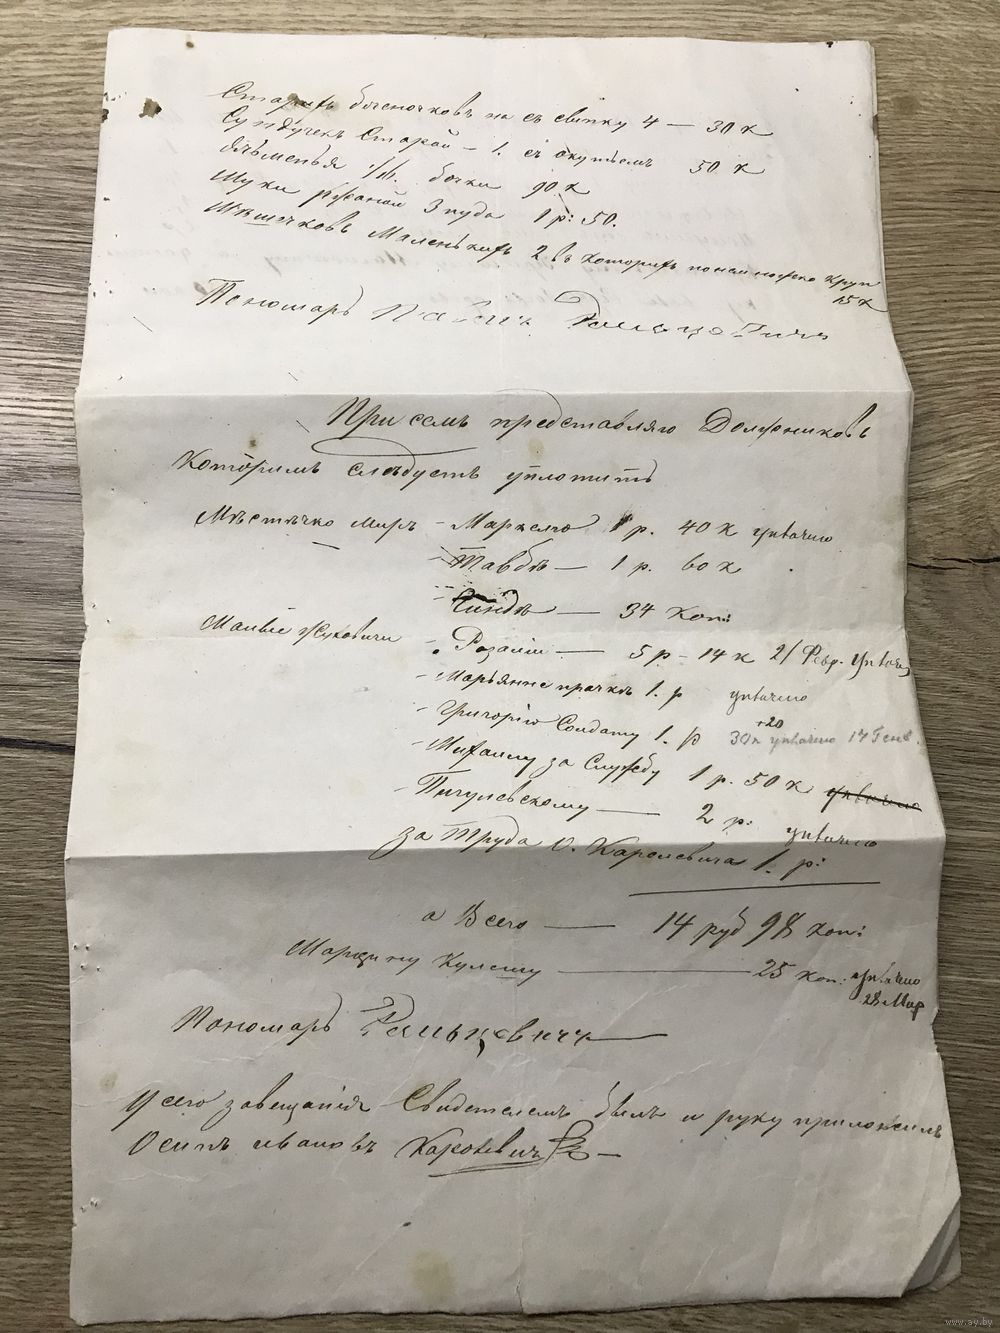 Старыхъ боченочковъ на съ свинку 4 — 30 к
Сундучекъ Старой — 1. съ окутьемъ 50 к
Ячьменья 1/м. бочки 90 к
Муки ржаной 3 пуда 1 р: 50.
Мѣшечковъ Маленькихъ 2 въ которыхъ понемножко круп
15 к
Пономаръ
При семъ представляю Должниковъ
которымъ слѣдуетъ уплотить
Мѣстечко Миръ - 1 р. 40 к уплачено
- Тавбѣ — 1 р. 60 к
- — 34 коп:
Малые Жуховичи - Розаліи — 5 р - 14 к 21 Февр. уплаче
- Марьянне прачкѣ 1. р уплачено
- Григорію Солдату 1. р +20
30 к уплачено 17 Генв
- Михалму за Службу 1 р. 50 к уплачено
- Пигулевскому — 2 р: уплачено
за Труда О. Каролевича 1. р:
а Всего — 14 руб 98 коп:
Марцину Кулешу — 25 коп: уплачено
28 Мар
Пономаръ
У сего завещанія Свидетелемъ былъ и руку приложилъ
Осипъ ивановъ Каролевичъ
www.ay.by